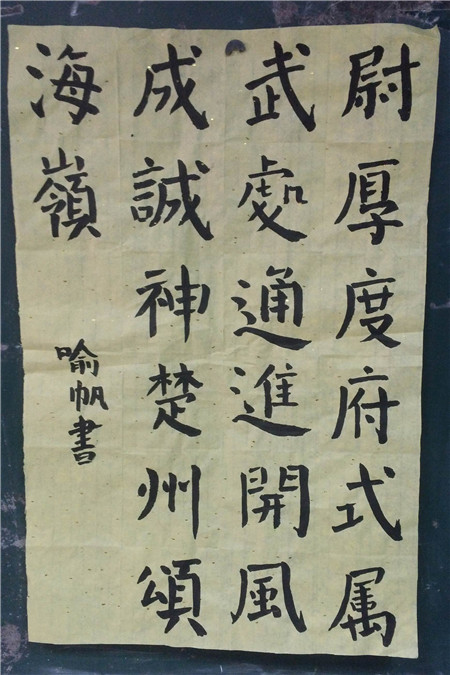 尉厚度府式属
武處通進開風
成誠神楚州頌
海嶺
喻帆書